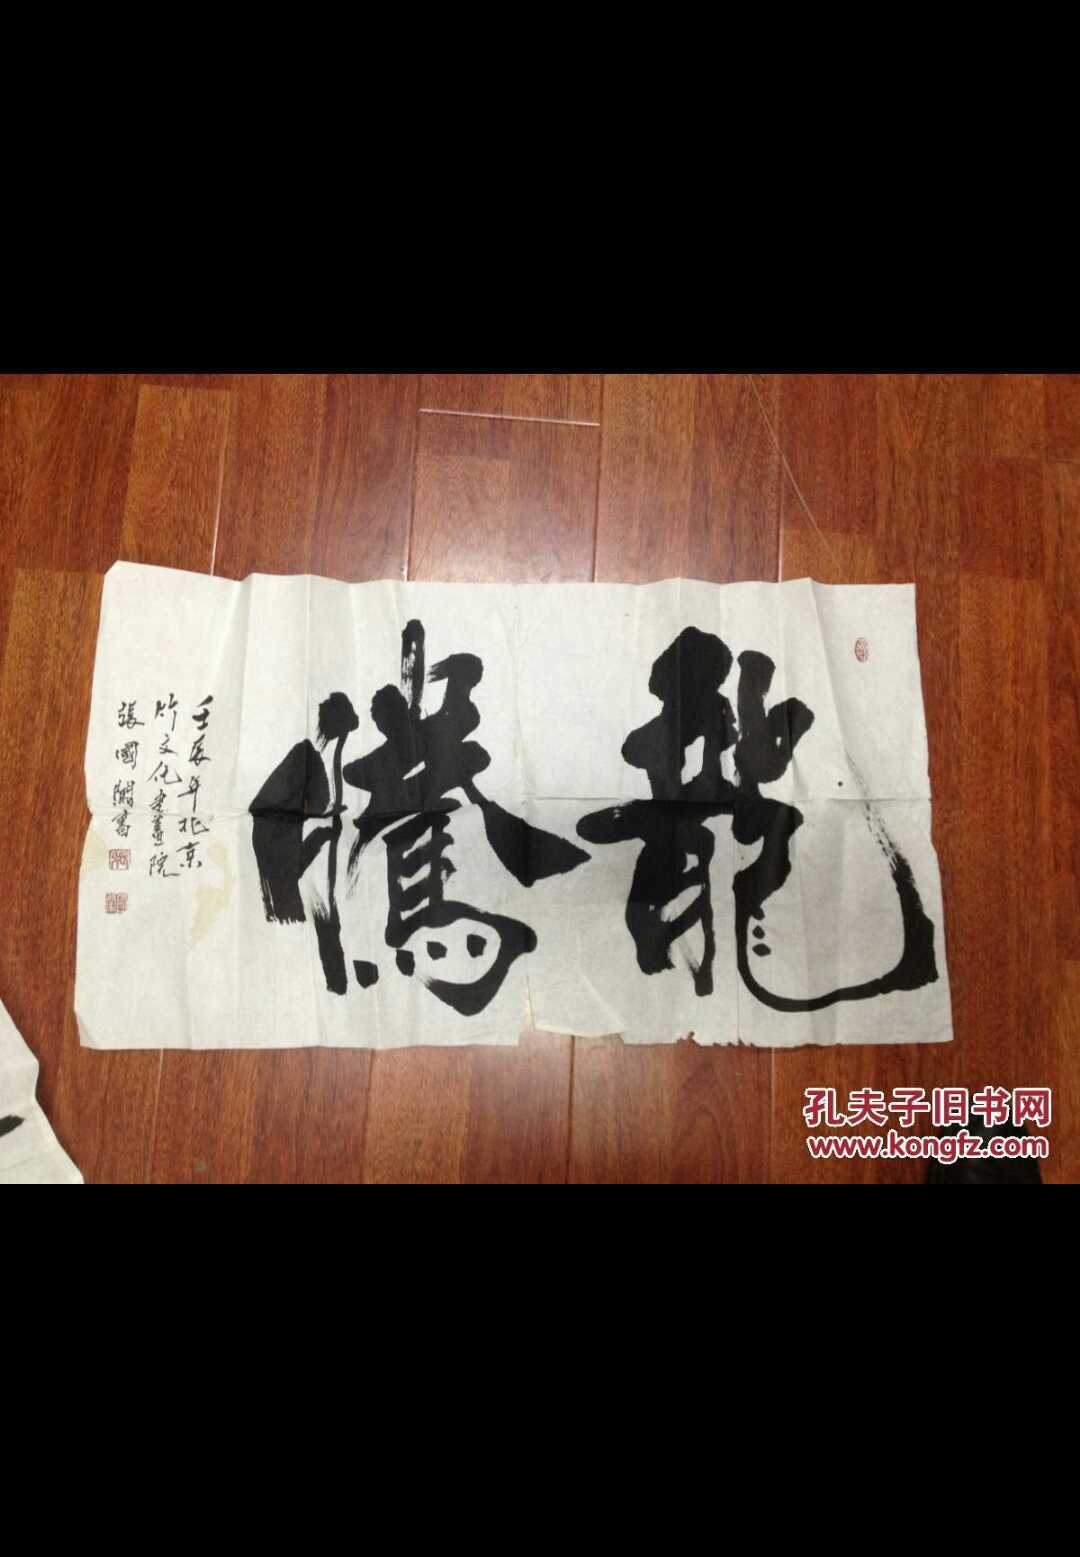 龍騰
壬辰年北京
竹文化書畫院
張國書
孔夫子旧书网
www.kongfz.com